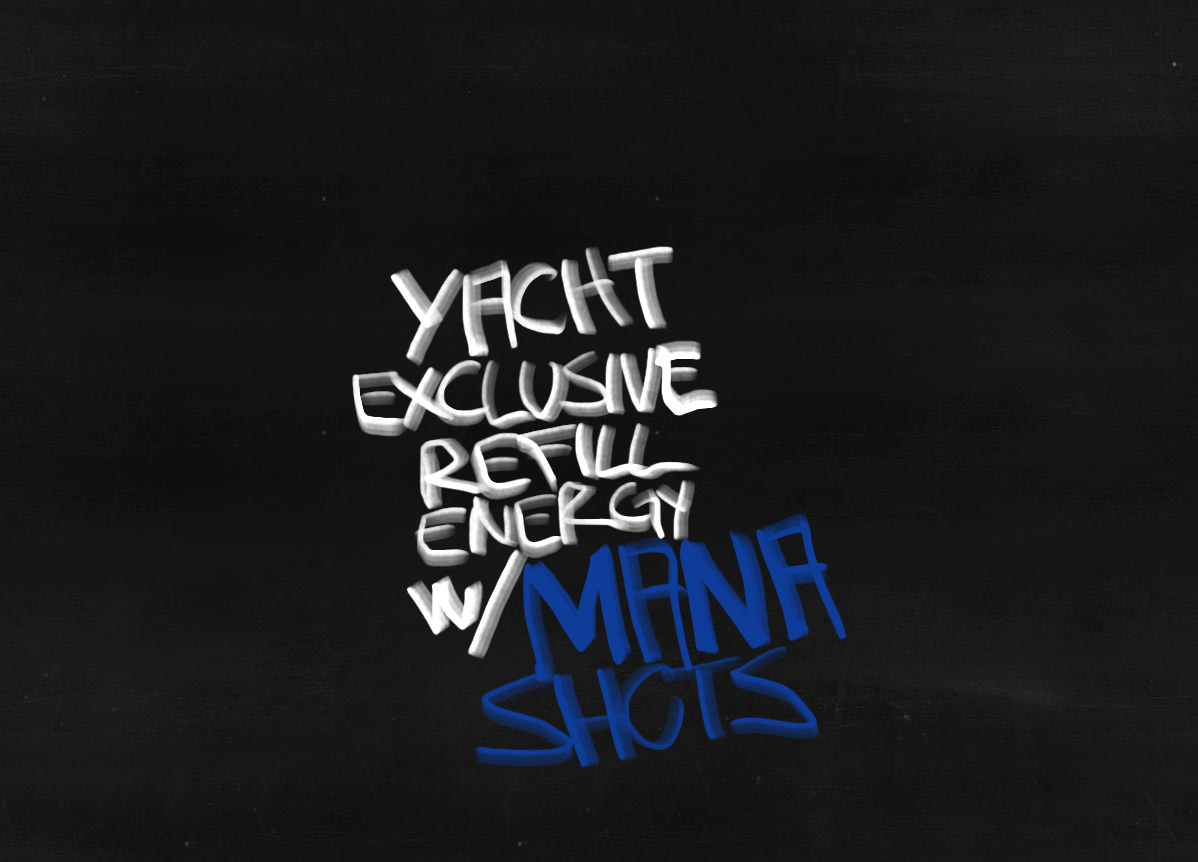 YACHT
EXCLUSIVE
REFILL
ENERGY
W/ MANA
SHOTS